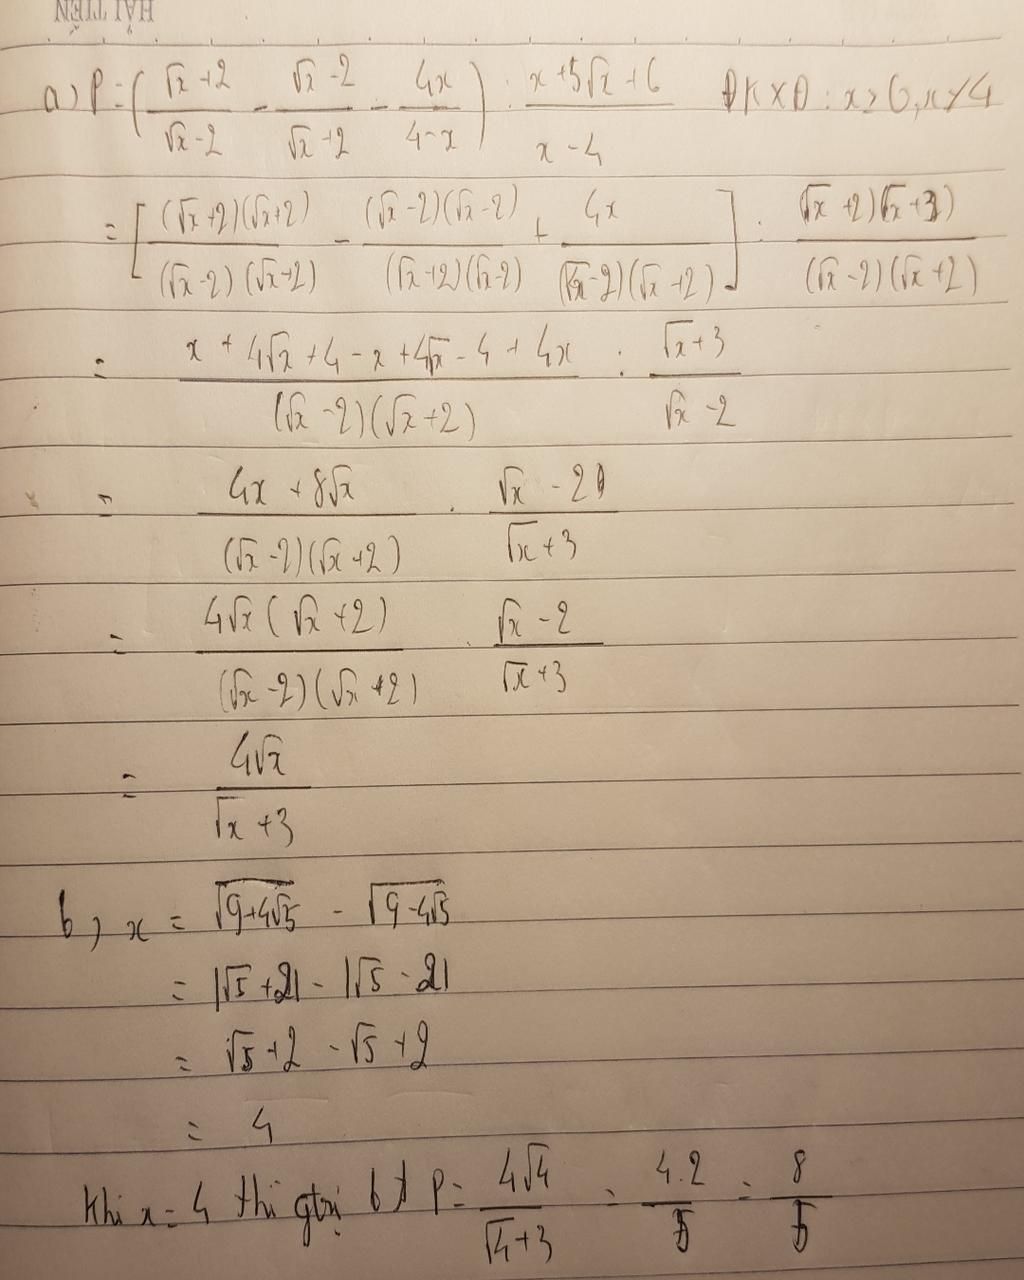 HẢI TIẾN
a) P = ( (√x + 2)/(√x - 2) - (√x - 2)/(√x + 2) - 4x/(4 - x) ) : (x + 5√x + 6)/(x - 4) ĐKXĐ : x ≥ 0, x ≠ 4
= [ (√x + 2)(√x + 2)/(√x - 2)(√x + 2) - (√x - 2)(√x - 2)/(√x + 2)(√x - 2) + 4x/(√x - 2)(√x + 2) ] : (√x + 2)(√x + 3)/(√x - 2)(√x + 2)
= (x + 4√x + 4 - x + 4√x - 4 + 4x)/(√x - 2)(√x + 2) : (√x + 3)/(√x - 2)
= (4x + 8√x)/(√x - 2)(√x + 2) . (√x - 2)/(√x + 3)
= 4√x(√x + 2)/(√x - 2)(√x + 2) . (√x - 2)/(√x + 3)
= 4√x/(√x + 3)
b) x = √(9 + 4√5) - √(9 - 4√5)
= |√5 + 2| - |√5 - 2|
= √5 + 2 - √5 + 2
= 4
Khi x = 4 thì gtrị bt P = 4√4/(√4 + 3) = 4.2/5 = 8/5